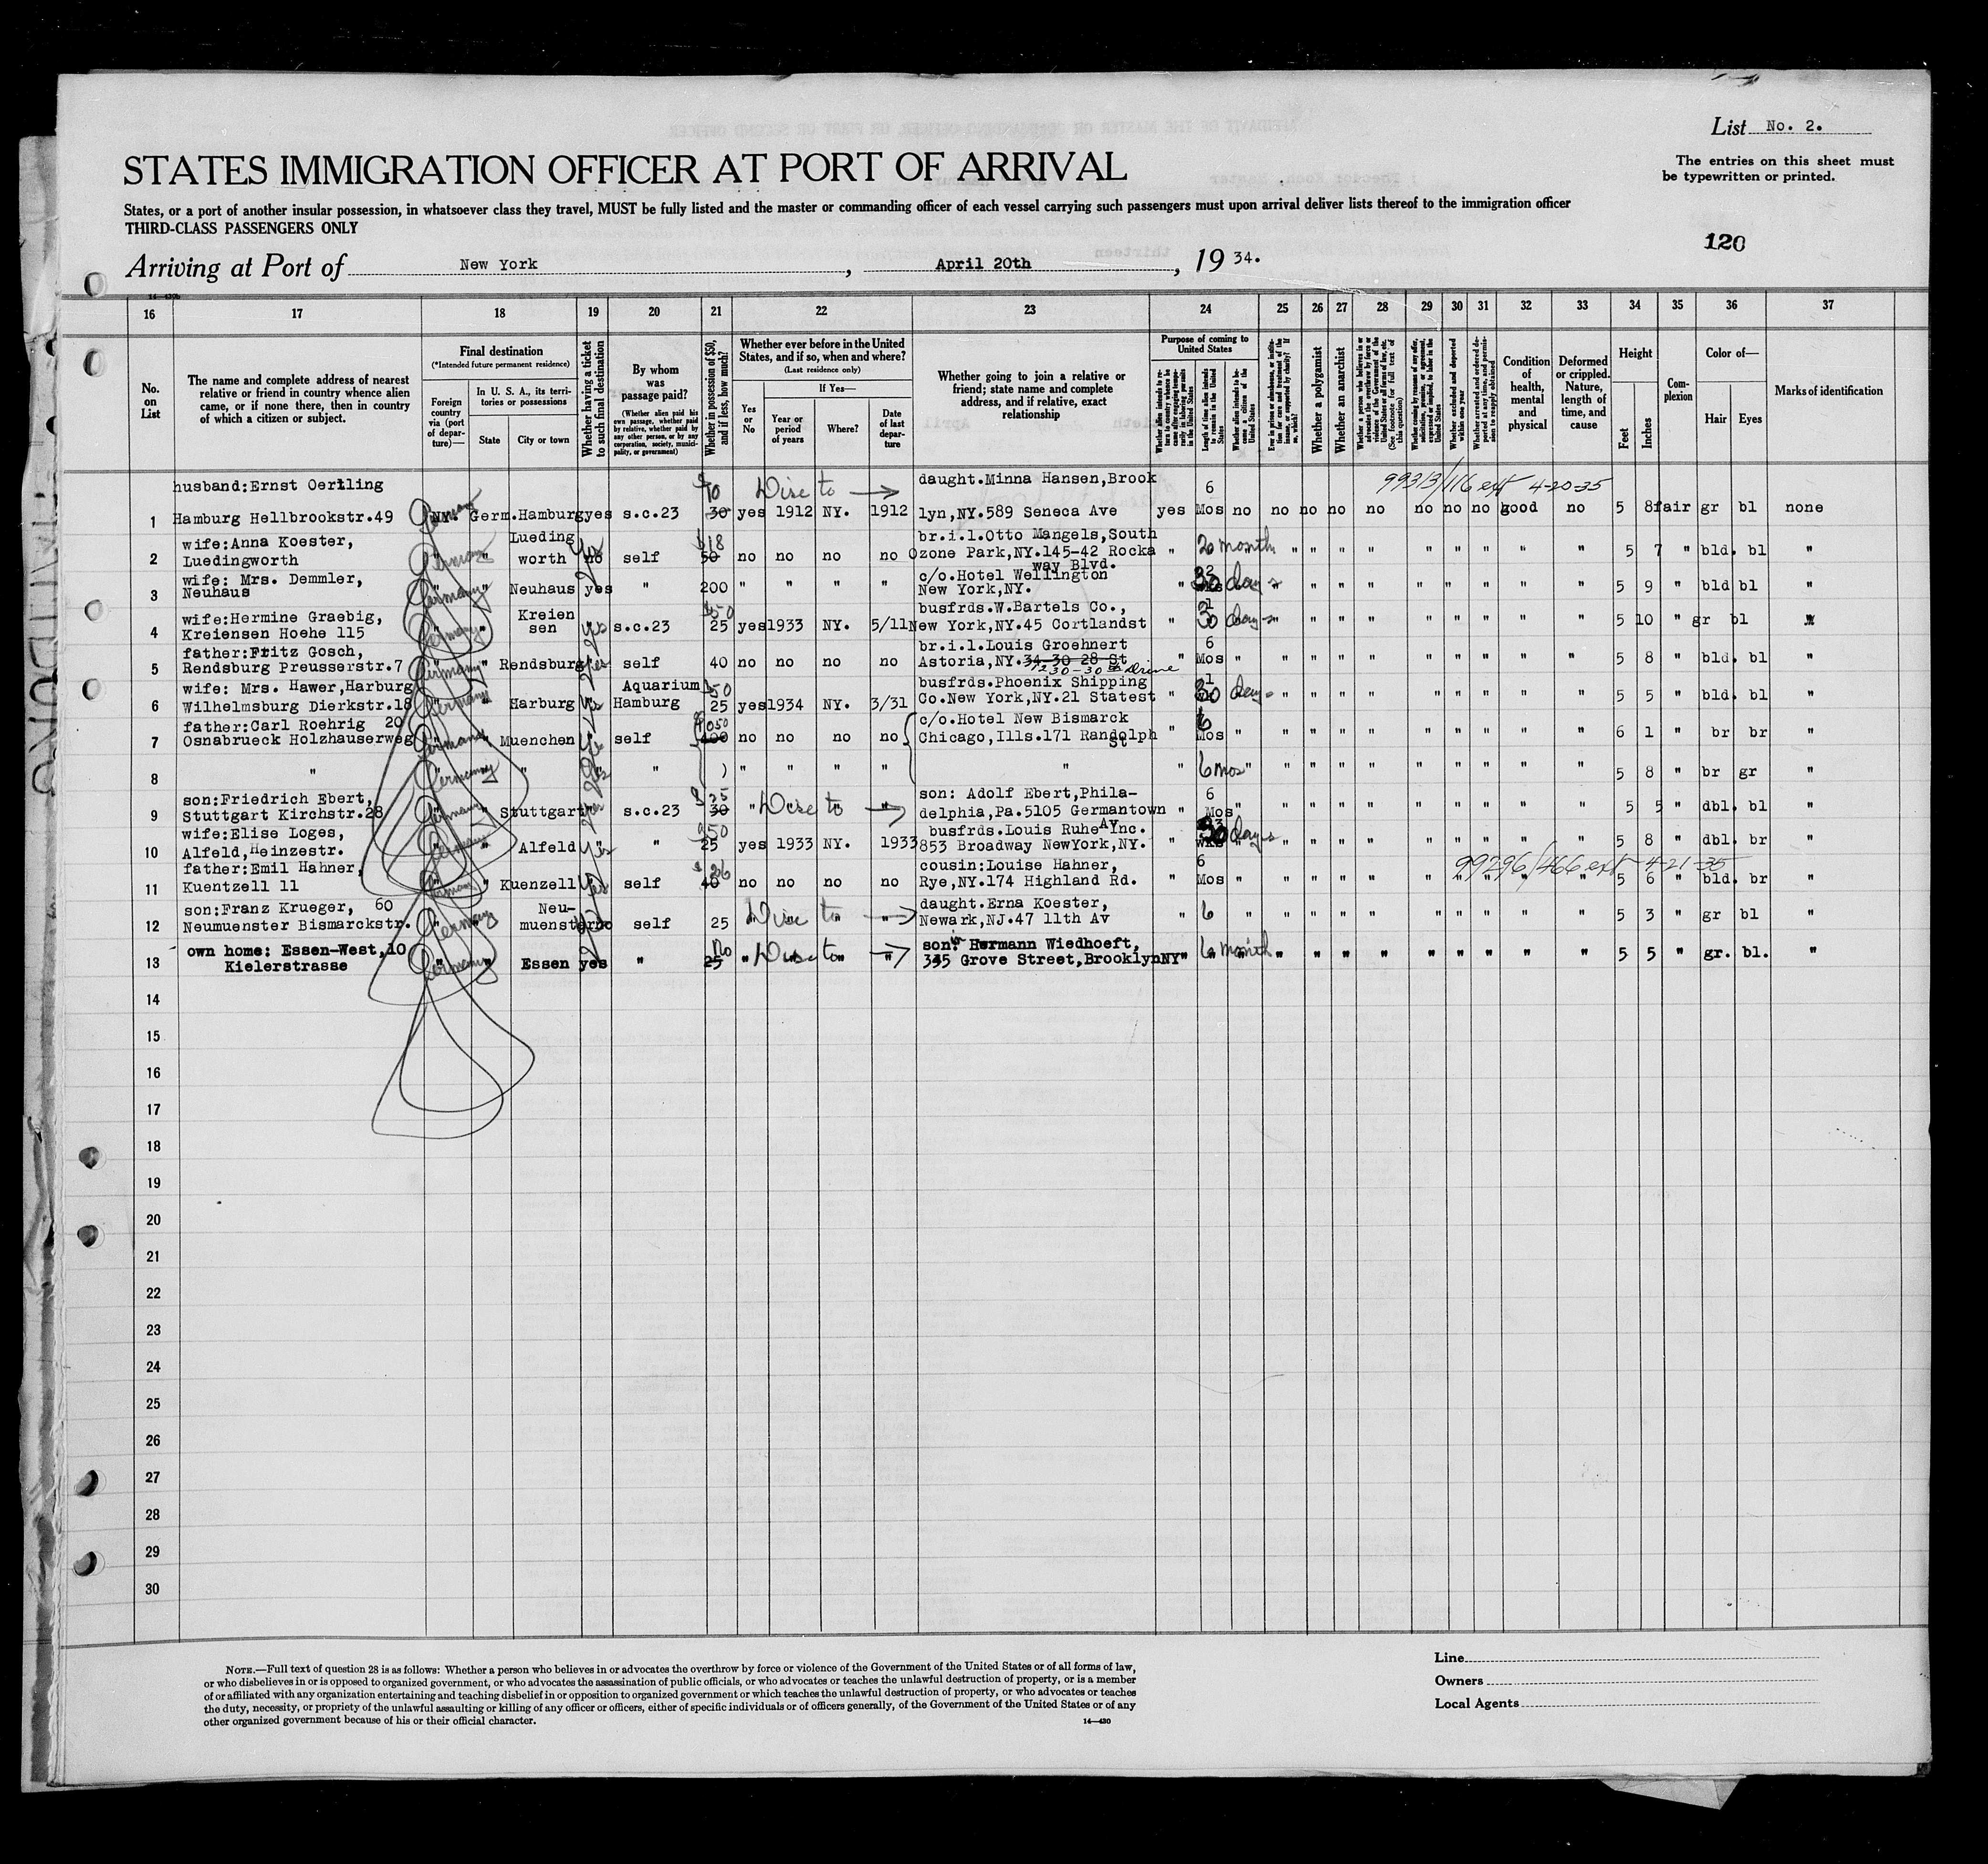 List No. 2.
STATES IMMIGRATION OFFICER AT PORT OF ARRIVAL
The entries on this sheet must
be typewritten or printed.
States, or a port of another insular possession, in whatsoever class they travel, MUST be fully listed and the master or commanding officer of each vessel carrying such passengers must upon arrival deliver lists thereof to the immigration officer
THIRD-CLASS PASSENGERS ONLY
120
Arriving at Port of New York, April 20th, 19 34.
16 17 18 19 20 21 22 23 24 25 26 27 28 29 30 31 32 33 34 35 36 37
No. on List
The name and complete address of nearest
relative or friend in country whence alien
came, or if none there, then in country
of which a citizen or subject.
Final destination
(*Intended future permanent residence)
Foreign country via (port of departure)—
In U. S. A., its territories or possessions
State
City or town
Whether having a ticket to such final destination
By whom was passage paid?
(Whether alien paid his own passage, whether paid by relative, whether paid by any other person, or by any corporation, society, municipality, or government)
Whether in possession of $50, and if less, how much?
Whether ever before in the United
States, and if so, when and where?
(Last residence only)
Yes or No
If Yes—
Year or period of years
Where?
Date of last departure
Whether going to join a relative or
friend; state name and complete
address, and if relative, exact
relationship
Purpose of coming to United States
Length of time alien intends to remain in the United States
Whether alien intends to become a citizen of the United States
Whether a polygamist
Whether an anarchist
Condition of health, mental and physical
Deformed or crippled. Nature, length of time, and cause
Height
Feet
Inches
Complexion
Color of—
Hair
Eyes
Marks of identification
husband:Ernst Oerlling $10 Dise to → daught.Minna Hansen,Brook 6 99313/116 ext 4-20-35
1 Hamburg Hellbrookstr.49 Germany NY. Germ.Hamburg yes s.c.23 30 yes 1912 NY. 1912 lyn,NY.589 Seneca Ave yes Mos no no no no no no no no good no 5 8 fair gr bl none
wife:Anna Koester, Lueding $18 br.i.l.Otto Mangels,South
2 Luedingworth Germany " worth no yes self 50 no no no no Ozone Park,NY.145-42 Rocka " 2 months " " " " " " " " " 5 7 " bld. bl "
way Blvd.
wife: Mrs. Demmler, c/o.Hotel Wellington 2
3 Neuhaus Germany " Neuhaus yes " 200 " " " " New York,NY. " 30 days " " " " " " " " " 5 9 " bld bl "
wife:Hermine Graebig, Kreien $50 busfrds.W.Bartels Co., 1
4 Kreiensen Hoehe 115 Germany " sen yes s.c.23 25 yes 1933 NY. 5/11 New York,NY.45 Cortlandst " 30 days " " " " " " " " " 5 10 " gr bl "
father:Fritz Gosch, br.i.l.Louis Groehnert 6
5 Rendsburg Preusserstr.7 Germany " Rendsburg yes self 40 no no no no Astoria,NY.34-30 28 St " Mos " " " " " " " " " " 5 8 " bld. bl "
wife: Mrs. Hawer,Harburg Aquarium $50 busfrds.Phoenix Shipping 1
6 Wilhelmsburg Dierkstr.18 Germany " Harburg yes Hamburg 25 yes 1934 NY. 3/31 Co.New York,NY.21 Statest " 30 days " " " " " " " " " 5 5 " bld. bl "
father:Carl Roehrig 20 c/o.Hotel New Bismarck 6
7 Osnabrueck Holzhauserweg Germany " Muenchen yes self 400 no no no no Chicago,Ills.171 Randolph " Mos " " " " " " " " " " 6 1 " br br "
St
8 " Germany " yes " " " " " " " 6 mos " " " " " " " " " " 5 8 " br gr "
son:Friedrich Ebert, $35 son: Adolf Ebert,Phila- 6
9 Stuttgart Kirchstr.28 Germany " Stuttgart yes s.c.23 30 " Dise to → delphia,Pa.5105 Germantown " Mos " " " " " " " " " " 5 5 " dbl. bl "
wife:Elise Loges, $50 busfrds.Louis Ruhe Ync. Av
10 Alfeld,Heinzestr. Germany " Alfeld yes " 25 yes 1933 NY. 1933 853 Broadway NewYork,NY. " 30 days " " " " " " " " " 5 8 " dbl. br "
father:Emil Hahner, $26 cousin:Louise Hahner, 6 99296/466 ext 4-21-35
11 Kuentzell 11 Germany " Kuenzell yes self 40 no no no no Rye,NY.174 Highland Rd. " Mos " " " " " " " " " " 5 6 " bld. br "
son:Franz Krueger, 60 Neu- daught.Erna Koester,
12 Neumuenster Bismarckstr. Germany muenster no self 25 Dise to → Newark,NJ.47 11th Av " 6 " " " " " " " " " " 5 3 " gr bl "
own home: Essen-West,10 son: Hermann Wiedhoeft,
13 Kielerstrasse Germany " Essen yes " 25 " Dise to → 345 Grove Street,Brooklyn NY " 6 month " " " " " " " " " 5 5 " gr. bl. "
14
15
16
17
18
19
20
21
22
23
24
25
26
27
28
29
30
NOTE.—Full text of question 28 is as follows: Whether a person who believes in or advocates the overthrow by force or violence of the Government of the United States or of all forms of law,
or who disbelieves in or is opposed to organized government, or who advocates the assassination of public officials, or who advocates or teaches the unlawful destruction of property, or is a member
of or affiliated with any organization entertaining and teaching disbelief in or opposition to organized government or which teaches the unlawful destruction of property, or who advocates or teaches
the duty, necessity, or propriety of the unlawful assaulting or killing of any officer or officers, either of specific individuals or of officers generally, of the Government of the United States or of any
other organized government because of his or their official character.
14—430
Line
Owners
Local Agents